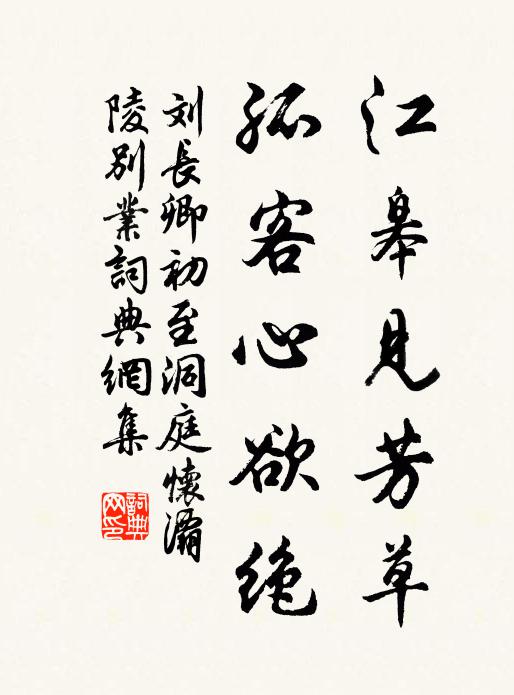 江皋見芳草
孤客心欲絶
刘長卿初至洞庭懷灞
陵別業詞典網集
詞典
网印